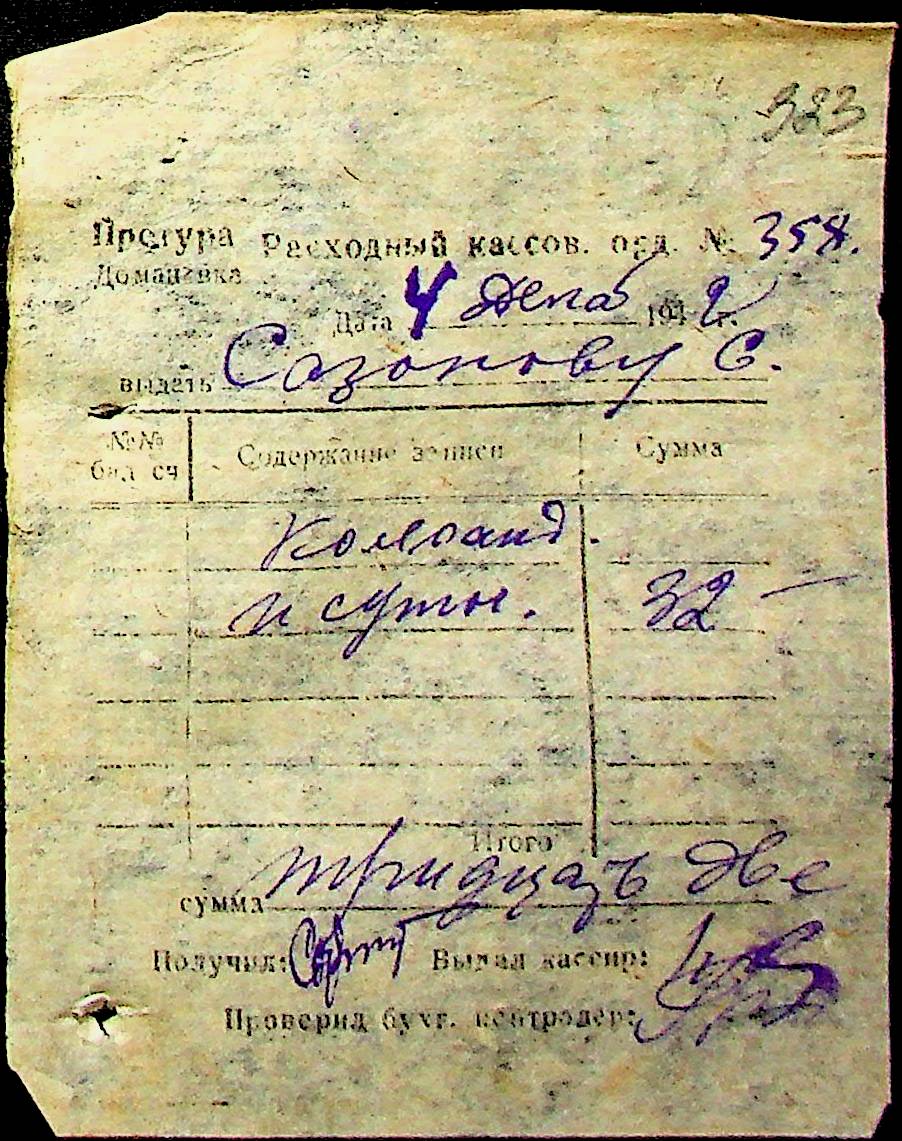 323
Претура Расходный кассов. орд. № 358.
Доманевка
Дата 4 Дека 194 2 г.
выдать Сазонову С.
№№ бал сч Содержание записи Сумма
Команд.
и суточ. 32 —
Итого
сумма тридцать две
Получил: Выдал кассир:
Проверил бухг. контролер: